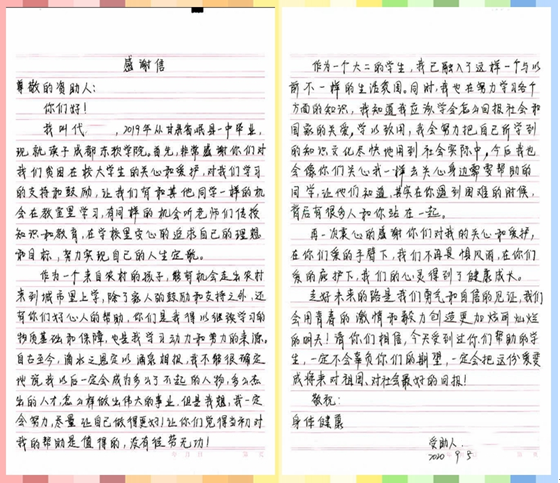 感谢信
尊敬的资助人：
你们好！
我叫代　　，2019年从甘肃省岷县一中毕业，
现就读于成都东软学院。首先，非常感谢你们对
我们贫困在校大学生的关心和爱护，对我们学习
的支持和鼓励，让我们有和其他同学一样的机
会在教室里学习，有同样的机会听老师们传授
知识和教育，在学校里安心的追求自己的理想
和目标，努力实现自己的人生定载。
作为一个来自农村的孩子，能有机会走出农村
来到城市里上学，除了家人的鼓励和支持之外，还
有你们好心人的帮助，你们是我得以继续学习的
物质基础和保障，也是我学习动力和努力的来源。
自古至今，滴水之恩定以涌泉相报，我不能很确定
地说我以后一定会成为多么了不起的人物，多么杰
出的人才，怎么样做出伟大的事业，但是我想，我一定
会努力，尽量让自己做得更好！让你们觉得当初对
我的帮助是值得的，没有徒劳无功！
作为一个大二的学生，我已融入了这样一个与以
前不一样的生活氛围。同时，我也在努力学习各个
方面的知识，我知道我应该学会怎么回报社会和
国家的关爱，学以致用，我会努力把自己所学到
的知识文化尽快地用到社会实际中，今后我也
会像你们关心我一样去关心身边需要帮助的
同学，让他们知道，其实在你遇到困难的时候，
背后有很多人和你站在一起。
再一次衷心的感谢你们对我的关心和爱护，
在你们爱的手臂下，我们不再是惧风雨，在你们
爱的庇护下，我们的心灵得到了健康成长。
走好未来的路是我们勇气和自信的见证，我们
会用青春的激情和毅力创造更加炫丽灿烂
的明天！请你们相信，今天受到过你们帮助的学
生，一定不会辜负你们的期望，一定会把这份爱变
成将来对祖国，对社会最好的回报！
敬祝：
身体健康
受助人：
2020 9. 5